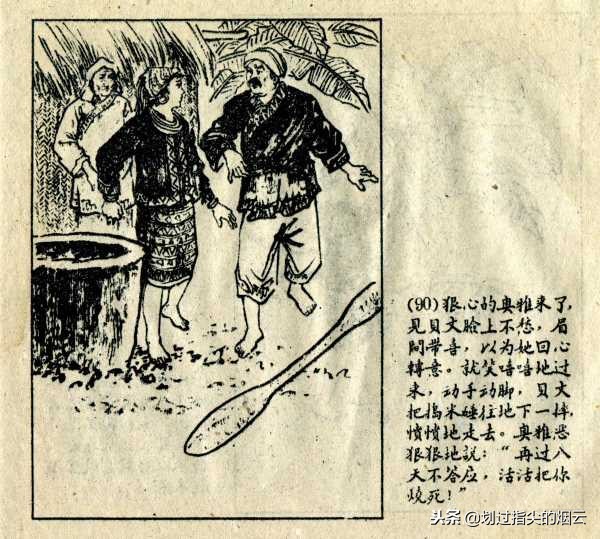 (90)狠心的奥雅来了,
見貝文脸上不愁,眉
間带喜,以为她回心
轉意。就笑嘻嘻地过
来,动手动脚,貝文
把搗米锤往地下一摔,
憤憤地走去。奥雅恶
狠狠地説:“再过八
天不答应,活活把你
烧死!”
头条@划过指头的烟云